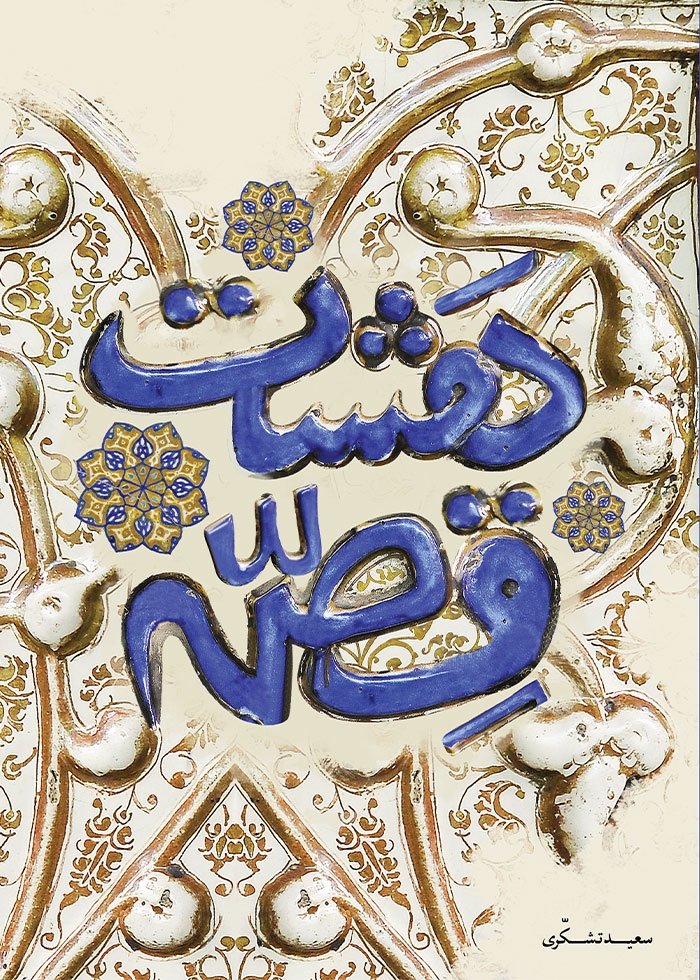 هَشت
قِصّه
سعید تشکّری